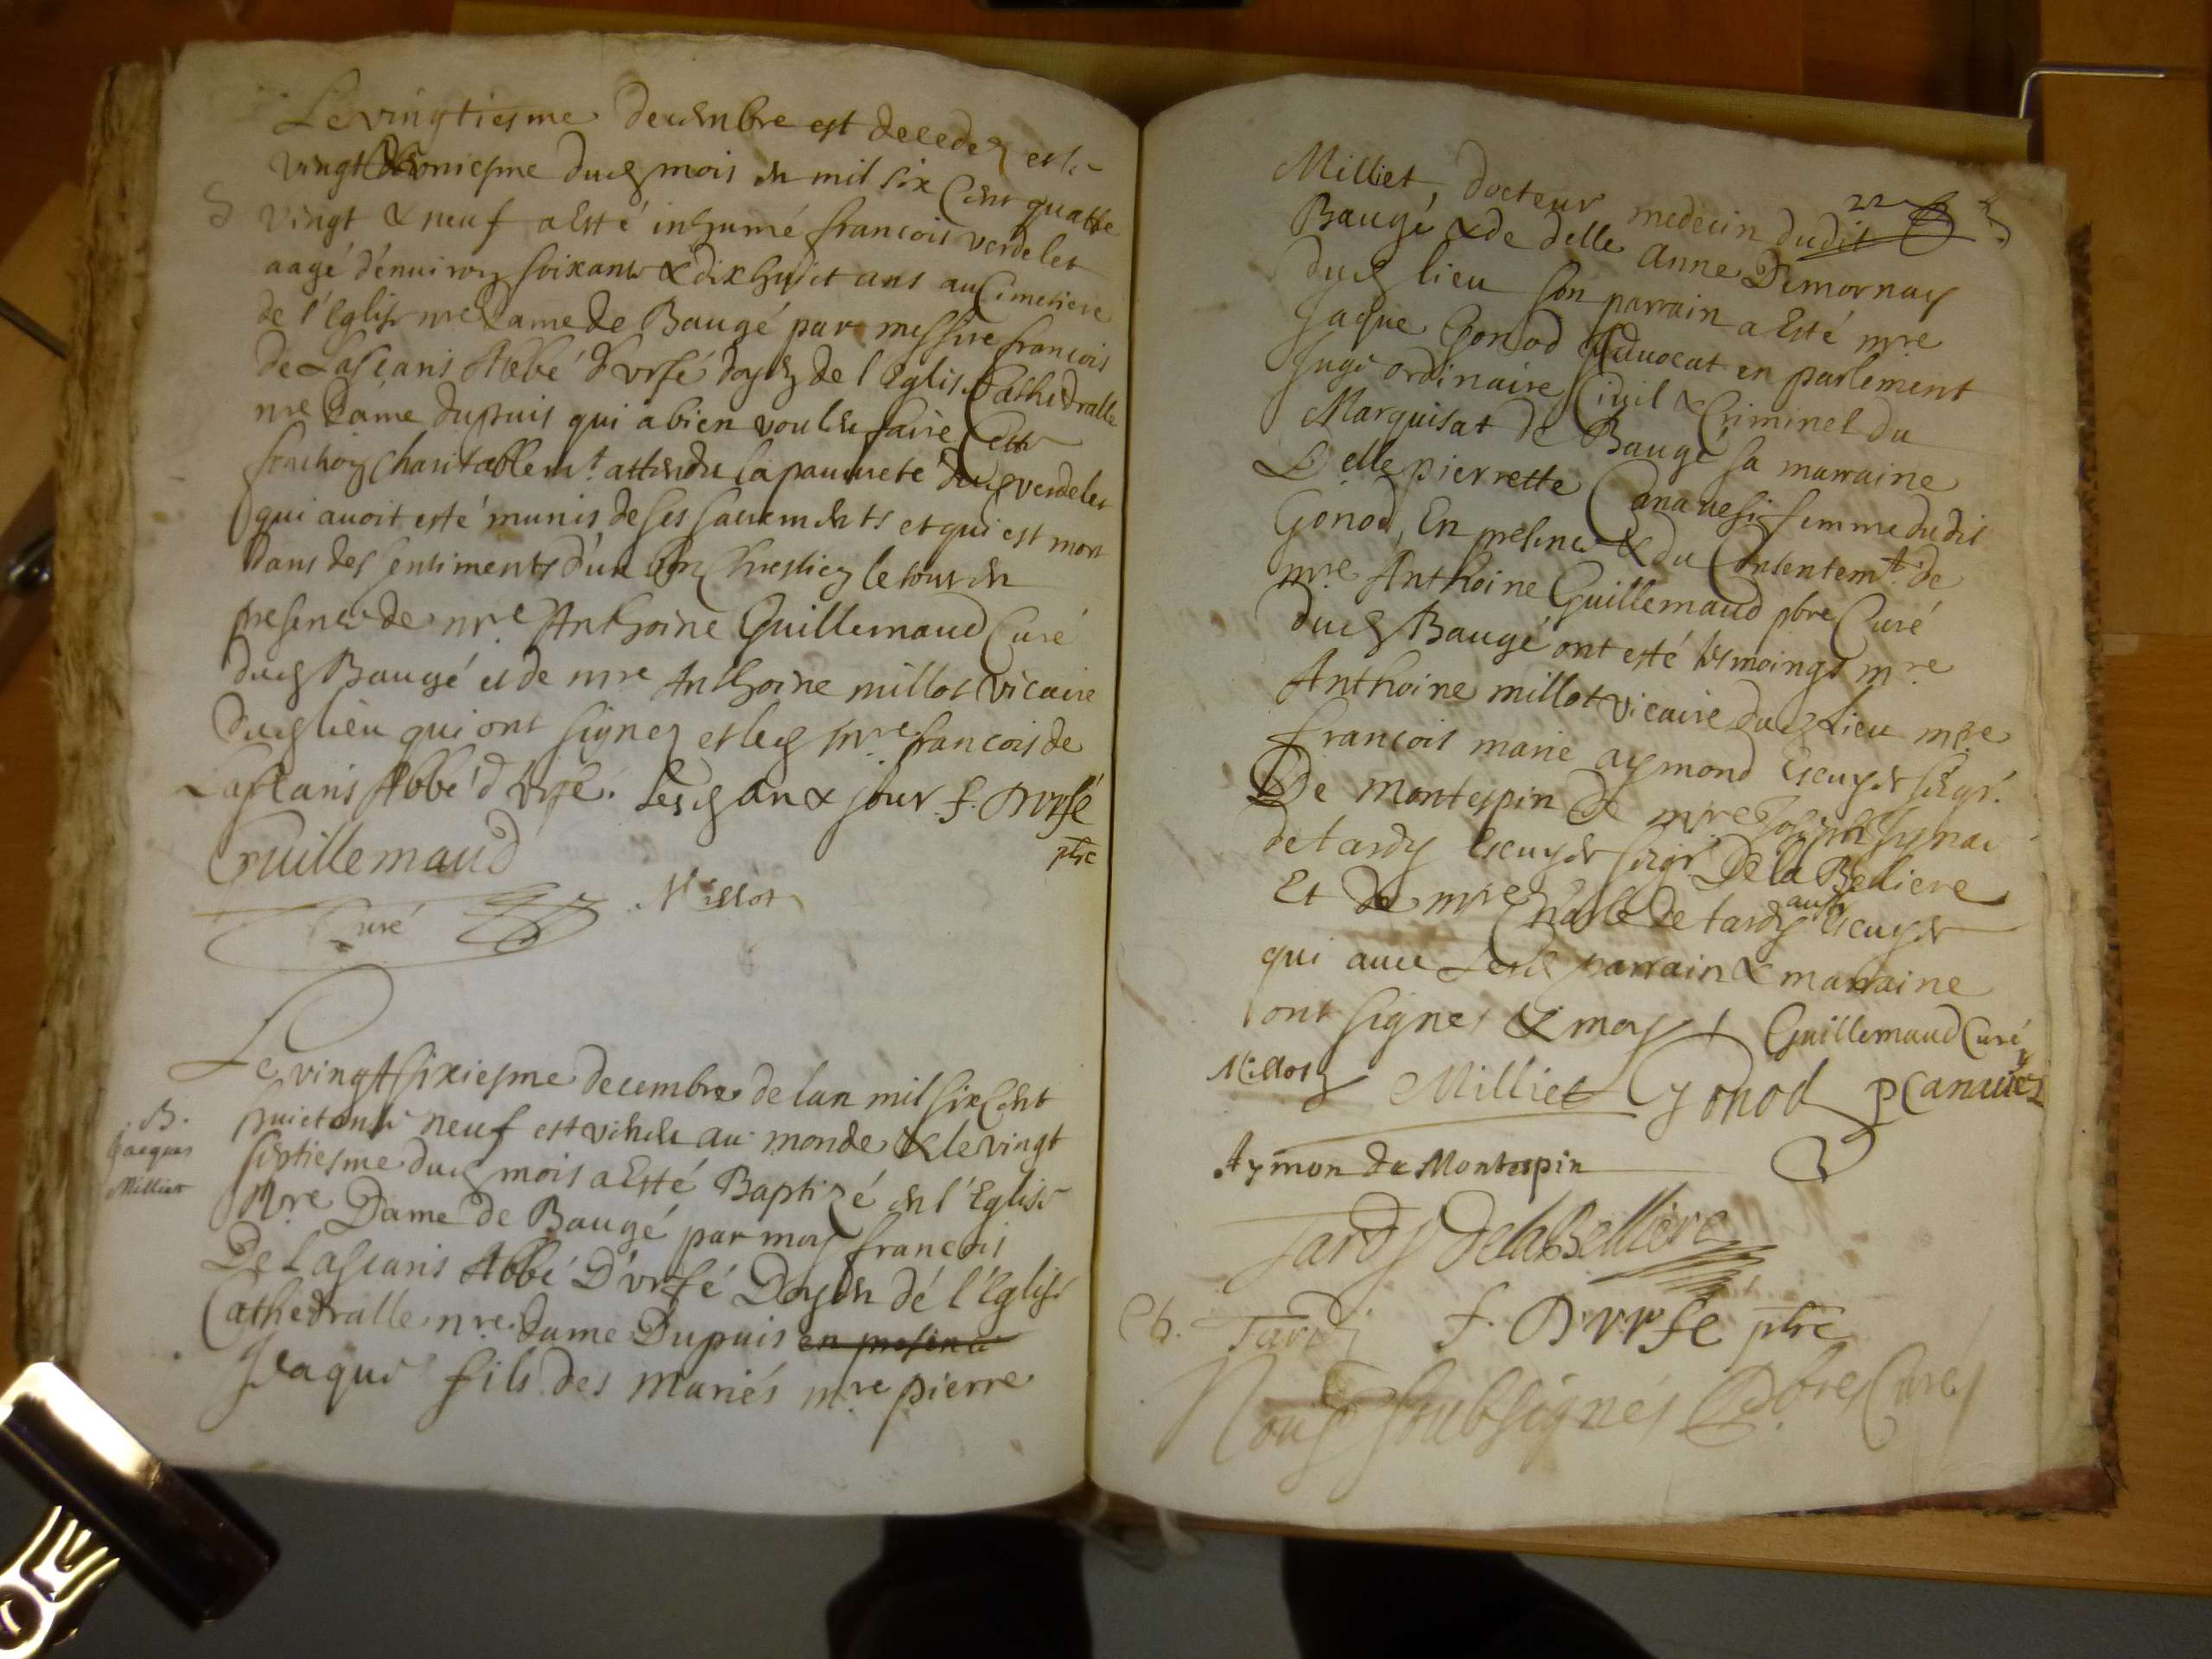 Le vingtiesme decembre est decedez et le
vingt uniesme dud mois en mil six cent quattre
vingt & neuf a esté inhumé françois verdelet
aagé d'enuiron soixante & dix huict ans au Cimetiere
de l'Eglise nre Dame de Baugé par messire françois
de Lascaris Abbé d'Vrfé doyen de l'Eglise Cathedralle
nre Dame du puis qui a bien voulu faire Cette
fonction charitablemt. attendu la pauureté dud verdelet
qui auoit esté munis de ses sacrements et qui est mort
dans des sentiments d'un bon chrestien le tout en
presence de mre Anthoine Guillemaud Curé
dud Baugé et de mre Anthoine millot vicaire
dud lieu qui ont signez et led mre. françois de
Lascaris Abbé d'Vrfé. Lesd an & jour f. Durfé
ptre
Guillemaud
Curé
Millot
Le vingt sixiesme decembre de lan mil six Cent
huictante neuf est venu au monde & le vingt
B.
Jacques
Milliet
septiesme dud mois a Esté Baptizé en l'Eglise
Nre Dame de Baugé par moy françois
De Lascaris Abbé D'vrfé Doyen dé l'Eglise
Cathedralle nre. dame Dupuis en presence
Jaque fils des mariés mre pierre
22
Milliet, docteur medecin dudit
Baugé & de delle Anne Demornay
dud lieu son parrain a Esté mre
Jaque Gonod Aduocat en parlement
Juge ordinaire Ciuil & Criminel du
Marquisat de Baugé sa marraine
Delle pierrette Canauesi femme dudit
Gonod, En presence & du Consentemt. de
mre Anthoine Guillemaud pbre Curé
dud Baugé ont esté tesmoings mre
Anthoine millot vicaire dud Lieu mre
françois marie aymond Escuyer seigr.
De montespin & mre Joseph Ignace
de tardy Escuyer seigr De la Belliere
Et de mre Charle de tardy aussy Escuyer
qui auec Led parrain & marraine
ont signez & moy Guillemaud Curé
Millot Milliet Gonod P Canauesi
Aymon de Montespin
Tardy delaBelliere
Ch. Tardy f. Durfe ptre
Nous soubsignes Pbres Cures